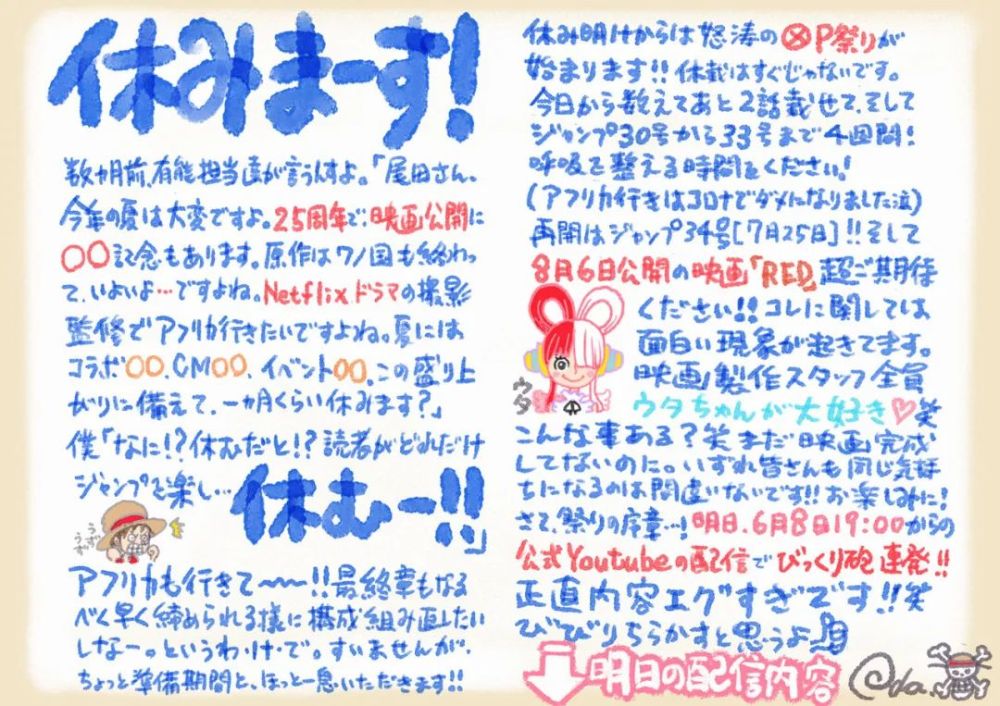 休みまーす!
数ヵ月前、有能担当達が言うんすよ。「尾田さん、
今年の夏は大変ですよ。25周年で、映画公開に
〇〇記念もあります。原作はワノ国も終わっ
て、いよいよ…ですよね。Netflixドラマの撮影
監修でアフリカ行きたいですよね。夏には
コラボ〇〇、CM〇〇、イベント〇〇、この盛り上
がりに備えて、一ヵ月くらい休みます?」
僕「なに!?休むだと!?読者がどれだけ
ジャンプを楽し…
休むー!!」
うず
うず
アフリカも行きて〜〜!!最終章もなる
べく早く締められる様に構成組み直したい
しなーっ。というわ・け・で。すいませんが、
ちょっと準備期間と、ほっと一息いただきます!!
休み明けからは怒涛の⊗P祭りが
始まります!!休載はすぐじゃないです。
今日から数えてあと2話載せて、そして
ジャンプ30号から33号まで4回間!
呼吸を整える時間をください!
(アフリカ行きはコロナでダメになりました泣)
再開はジャンプ34号[7月25日]!!そして
8月6日公開の映画「RED」超ご期待
ください!!コレに関しては
面白い現象が起きてます。
映画製作スタッフ全員
ウタ
ウタちゃんが大好き♡笑
こんな事ある?笑まだ映画完成
してないのに。いずれ皆さんも同じ気持
ちになるのは間違いないです!!お楽しみに!
さて、祭りの序章…!明日、6月8日19:00からの
公式Youtubeの配信でびっくり砲連発!!
正直内容エグすぎです!!笑
びびりちらかすと思うよ
明日の配信内容
Oda.